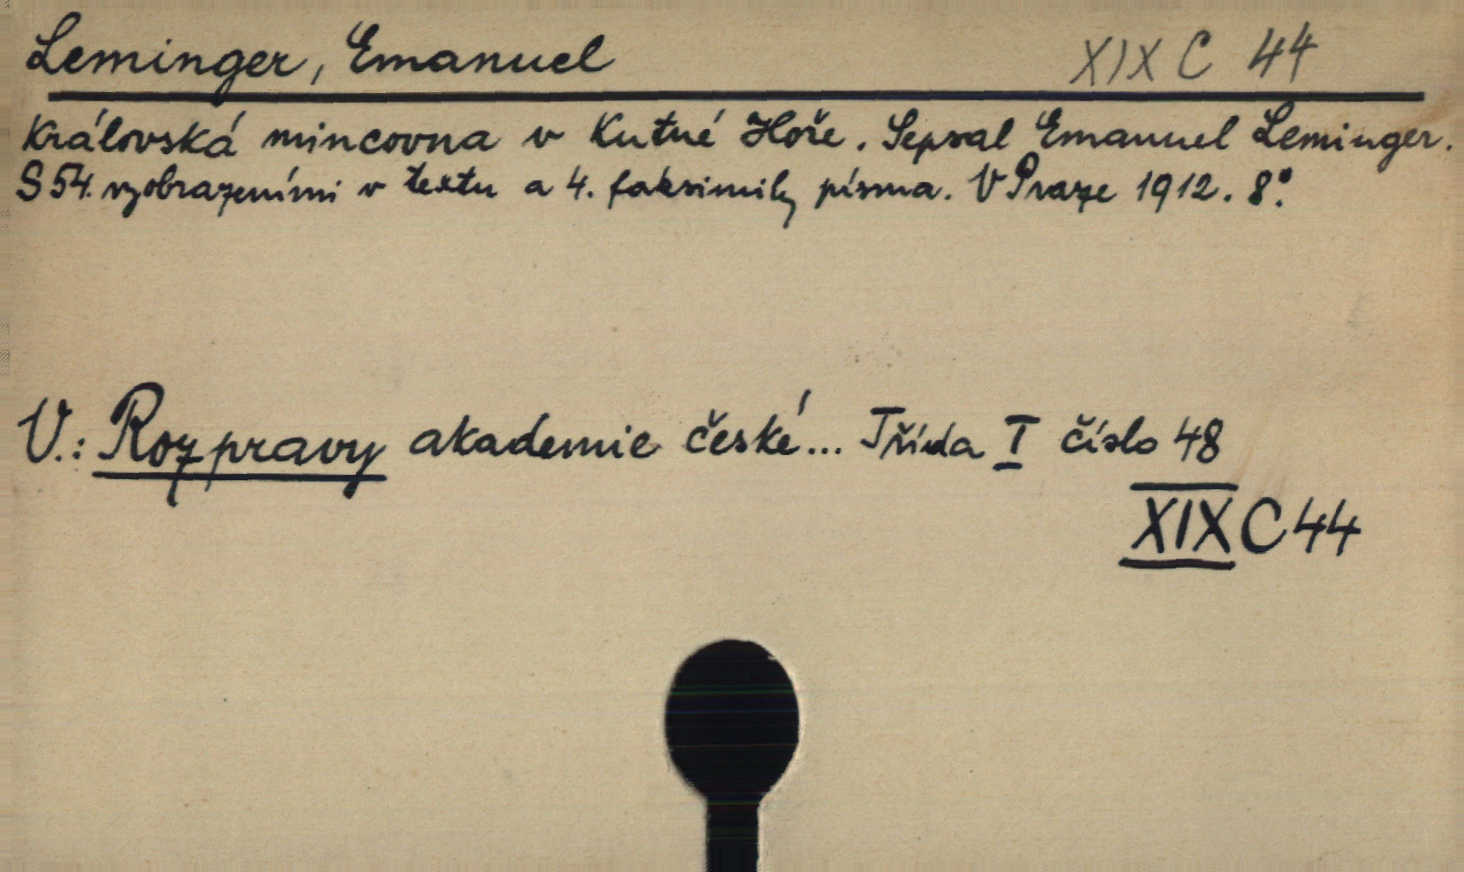 Leminger, Emanuel XIX C 44
Královská mincovna v Kutné Hoře. Sepsal Emanuel Leminger.
S 54. vyobrazeními v textu a 4. faksimily písma. V Praze 1912. 8°.
V.: Rozpravy akademie české... Třída I číslo 48
XIX C 44